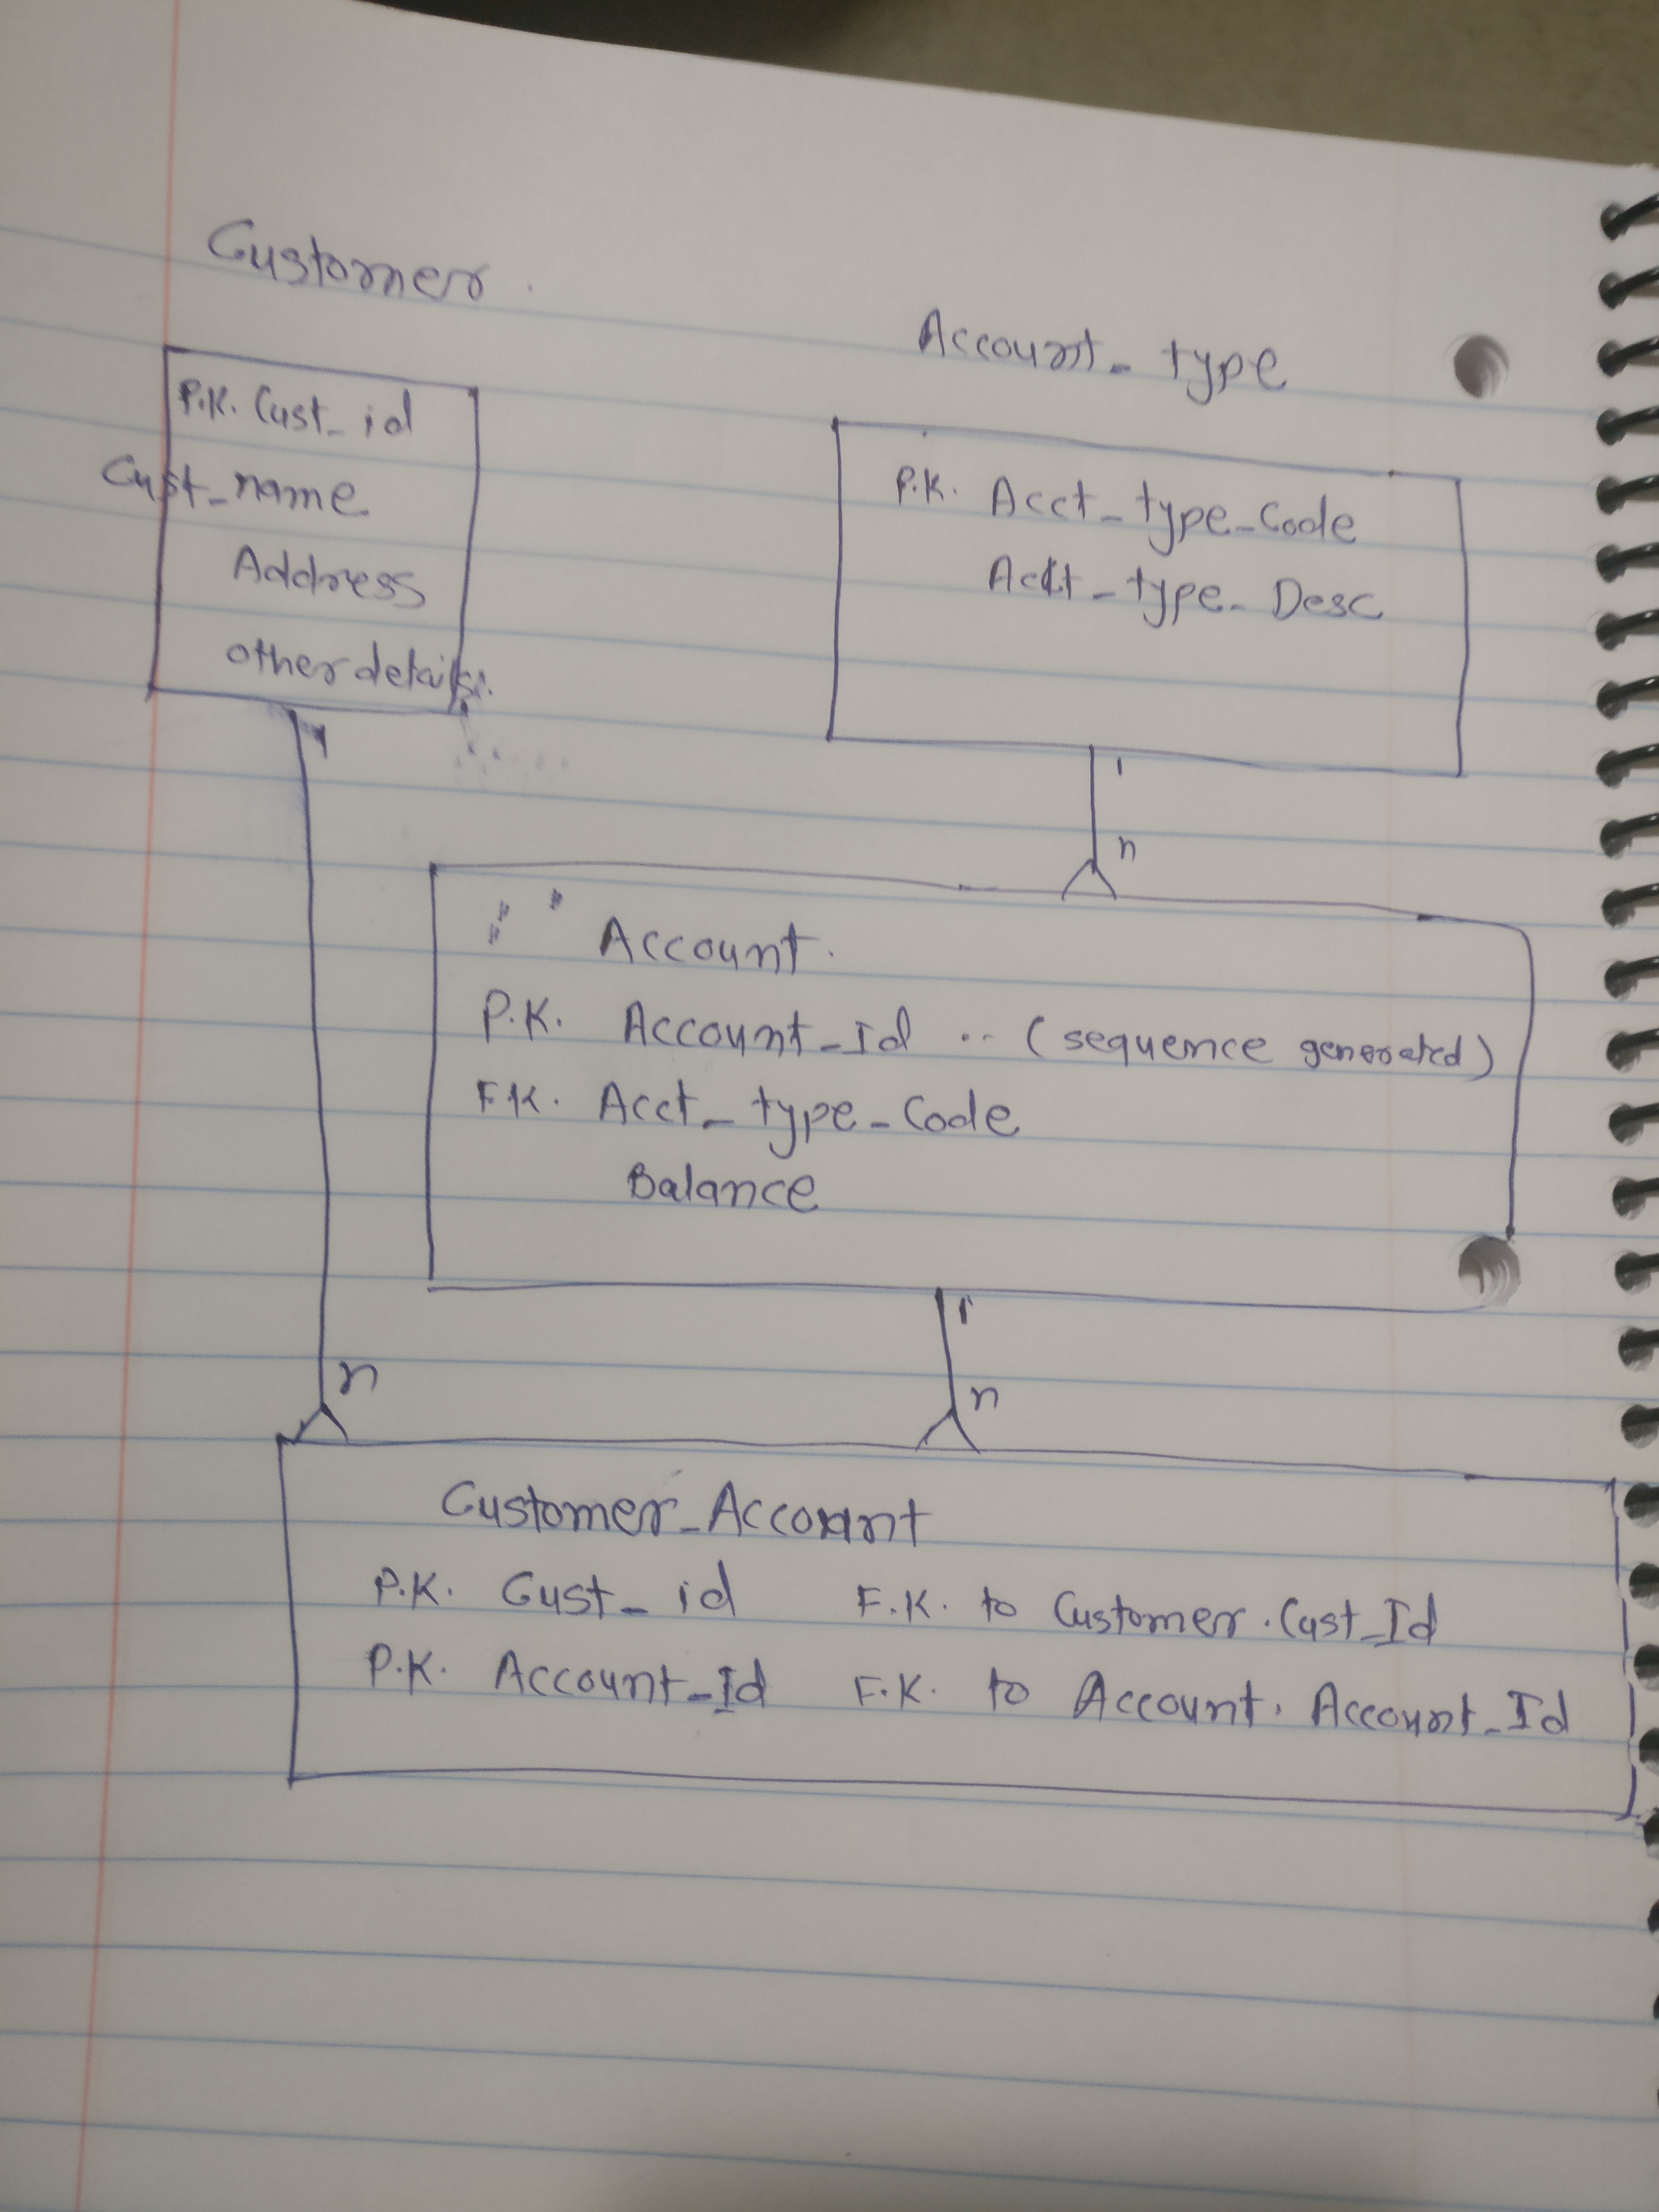 Customer
P.K. Cust_id
Cust_name
Address
other details
1
Account_type
P.K. Acct_type_Code
Acct_type_Desc
1
n
Account
P.K. Account_Id .. (sequence generated)
F.K. Acct_type_Code
Balance
1
n
n
Customer_Account
P.K. Cust_id F.K. to Customer.Cust_Id
P.K. Account_Id F.K. to Account.Account_Id